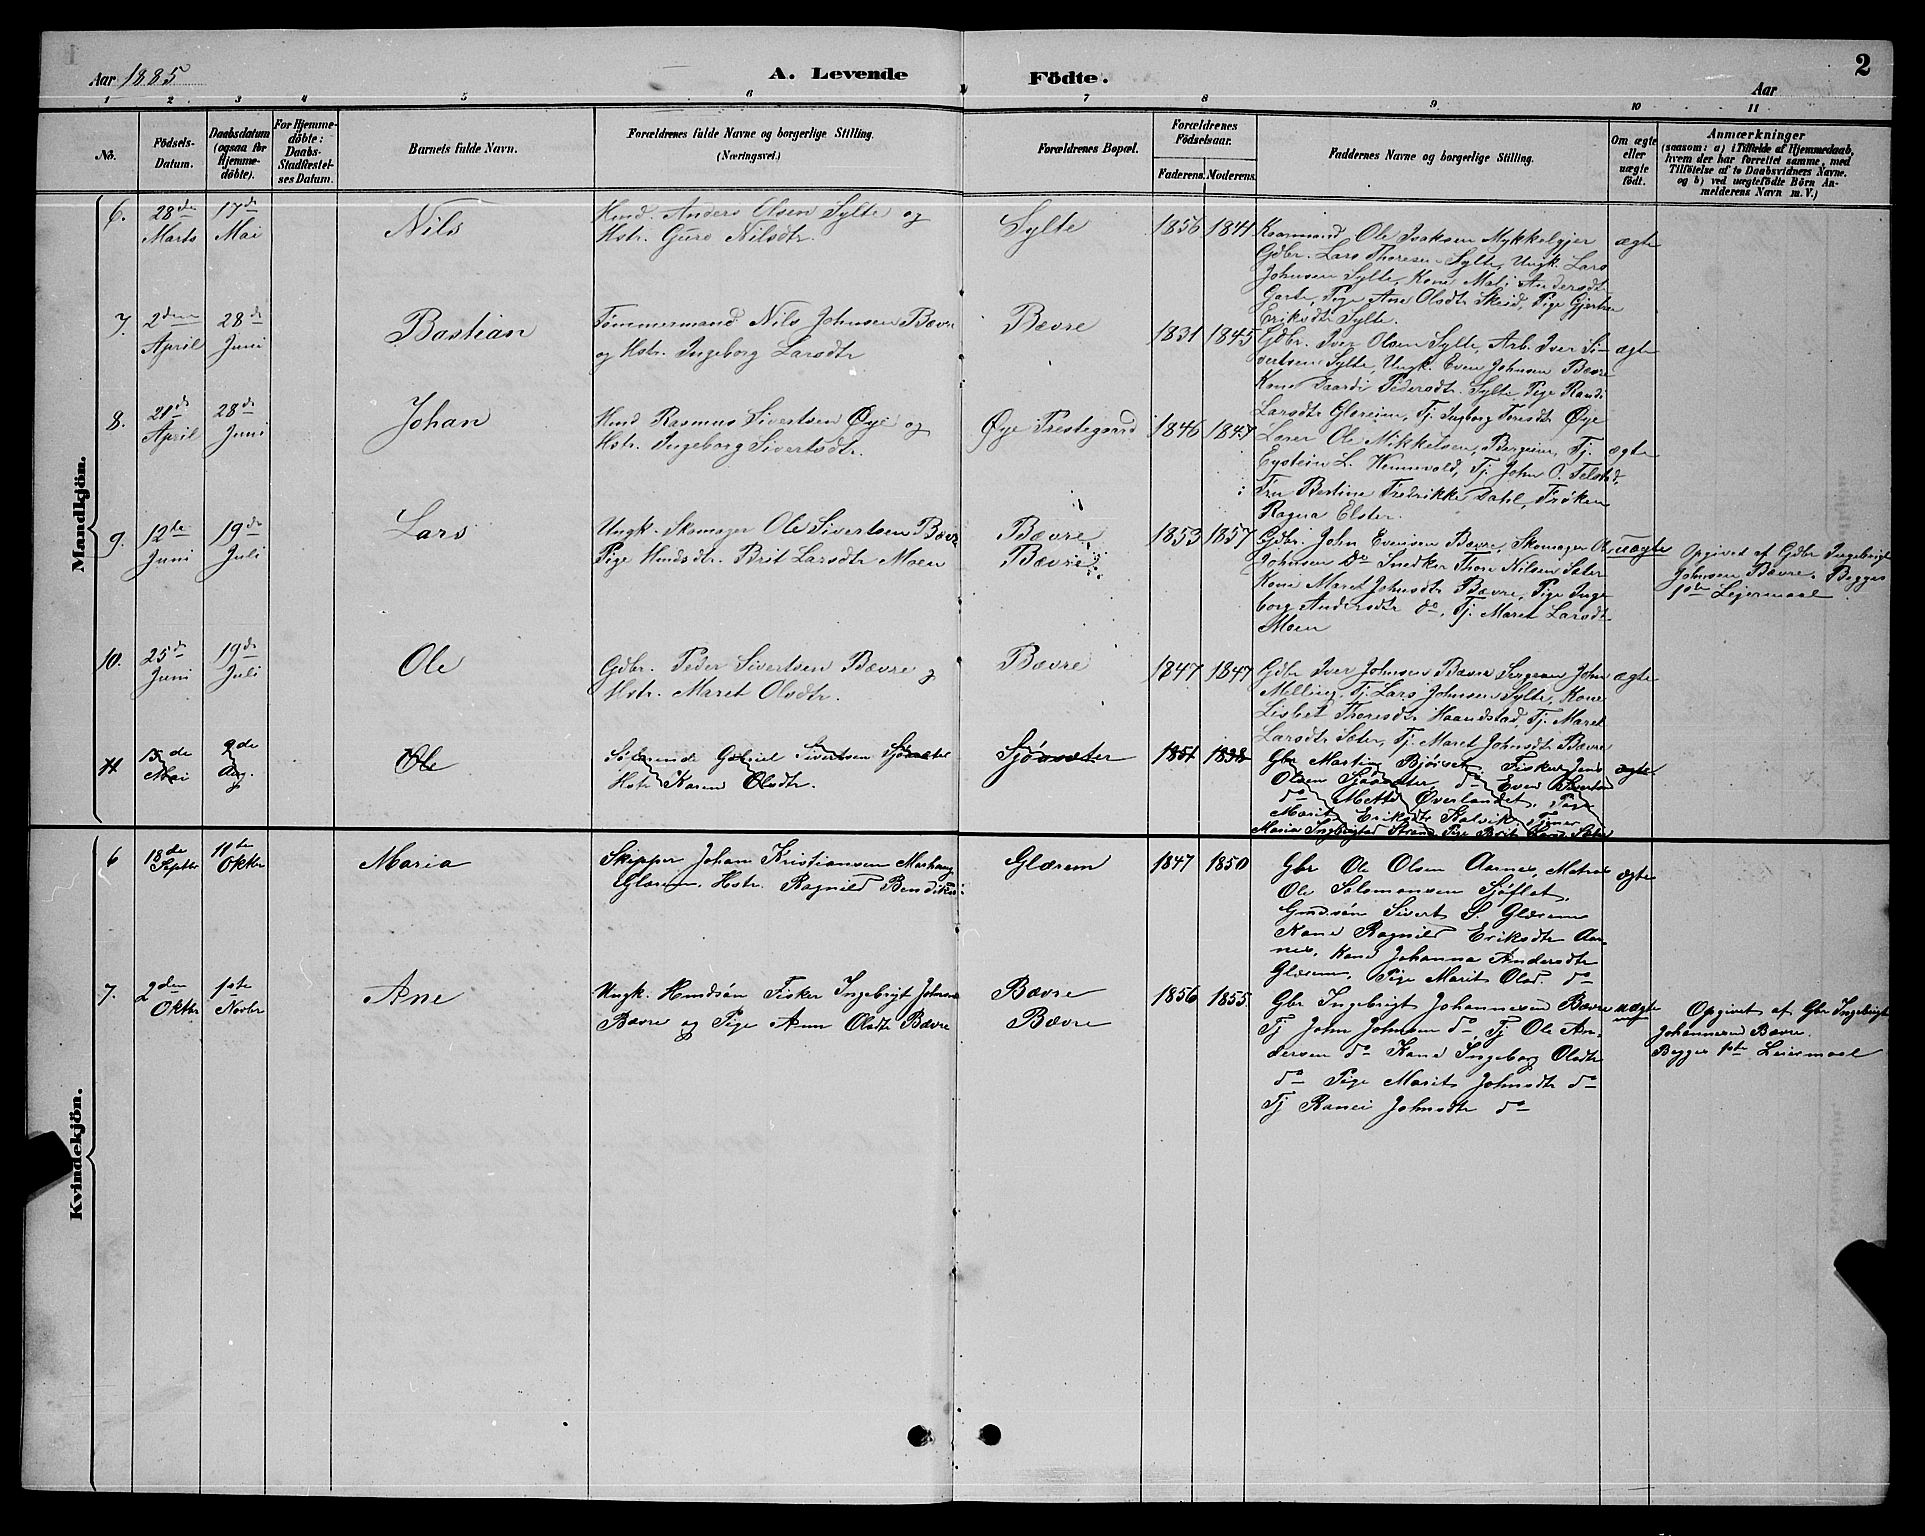 Aar 1885
A. Levende Födte.
Aar
2
1 2 3 4 5 6 7 8 9 10 11
No.
Födsels-Datum.
Daabsdatum (ogsaa for Hjemme-döbte).
For Hjemme-döbte: Daabs-Stadfæstel-ses Datum.
Barnets fulde Navn.
Forældrenes fulde Navne og borgerlige Stilling.
(Næringsvei.)
Forældrenes Bopæl.
Forældrenes Födselsaar.
Faderens. Moderens.
Faddernes Navne og borgerlige Stilling.
Om ægte eller uægte födt.
Anmærkninger
(saasom: a) i Tilfælde af Hjemmedaab,
hvem der har forrettet samme, med
Tilföielse af to Daabsvidners Navne.
og b) ved uægtefödte Börn An-
melderens Navn m. V.)
Mandkjön.
6. 28de Marts 17de Mai
Nils
Hmd. Anders Olsen Sylte og
Hstr. Guro Nilsdtr.
Sylte
1856 1841
Kaarmand Ole Isaksen Mykkelgjer
Gdbr. Lars Thoresen Sylte, Ungk. Lars
Johnsen Sylte, Kone Mali Andersdt
Garte, Pige Ane Olsdtr Skeid, Pige Gjertru
Eriksdtr Sylte.
ægte
7. 2den April 28de Juni
Bastian
Tömmermand Nils Johnsen Bævre
og Hstr. Ingeborg Larsdtr
Bævre
1831 1845
Gdbr. Iver Olsen Sylte, Arb. Iver Si-
vertsen Sylte, Ungk. Even Johnsen Bævre
Kone Saardi Pedersdtr. Sylte, Pige Randi
Larsdtr Glæreim, Tj. Ingborg Toresdtr Øye
ægte
8. 21de April 28de Juni
Johan
Hmd Rasmus Sivertsen Øye og
Hstr. Ingeborg Sivertsdtr.
Øye Prestegaard
1846 1847
Lærer Ole Mikkelsen Bergeim, Tj.
Eystein L. Hennevold, Tj. John O. Telstad,
Fru Bertine Fredrikke Dahl, Fröken
Ragna Elster.
ægte
9. 12te Juni 19de Juli
Lars
Ungk. Skomager Ole Sivertsen Bævre
Pige Hmdsdtr. Brit Larsdtr Moen
Bævre,
Bævre
1853 1857
Gdbr. John Evensen Bævre, Skomager O.
Johnsen Do Snedker Thore Nilsen Sæter
Kone Maret Johnsdtr Bævre, Pige Inge
borg Andersdtr do, Tj. Maret Larsdtr
Moen
uægte
Opgivet af Gdbr Ingebrigt
Johnsen Bævre. Begges
1ste Lejermaal
10. 25de Juni 19de Juli
Ole
Gdbr. Peder Sivertsen Bævre og
Hstr. Maret Olsdtr.
Bævre
1847 1847
Gdbr Iver Johnsen Bævre Sergean John
Melling, Tj. Lars Johnsen Sylte, Kone
Lisbet Thoresdtr Haandstad, Tj. Maret
Larsdtr Sæter, Tj. Maret Johnsdtr Bævre
ægte
11 15de Mai 9de Aug.
Ole
Gabriel Sivertsen Sjösæter
Hstr Karen Olsdtr.
Sjösæter
1851 1838
Gbr Martin Bjöiset, Fisker Jens
Olsen Sjösæter, do Even Sivertsen
do Mette Överlandet, Pige
Marit Eriksdtr Kalvik, Tjener
Maria Ingbrigtsd Strand Pige Berit Larsd Sæter
ægte
Kvindekjön.
6 18de Septbr 11te Oktbr
Maria
Skipper Johan Kristiansen Marhaug
Glærem, Hstr. Ragnild Bendiks:
Glærem
1847 1850
Gbr Ole Olsen Aarnes, Matros
Ole Salomonsen Sjöflot,
Gmdsön Sivert S. Glærem
Kone Ragnild Eriksdtr Aar-
nes, Kone Johanna Andersdtr
Glærem, Pige Marit Olsd. do
ægte
7. 2den Oktbr 1ste Novbr
Ane
Ungk. Hmdsön Fisker Ingebrigt Johnsen
Bævre og Pige Ann Olsdtr Bævre
Bævre
Bævre
1856 1855
Gbr Ingebrigt Johannesen Bævre
Tj John Johnsen do, Tj Ole An-
dersen do Kone Ingeborg Olsdtr
do Pige Marit Johnsdtr do
Tj Ranei Johnsdtr do
uægte
Opgivet af Gbr Ingebrigt
Johannesen Bævre.
Begges 1ste Leiermaal